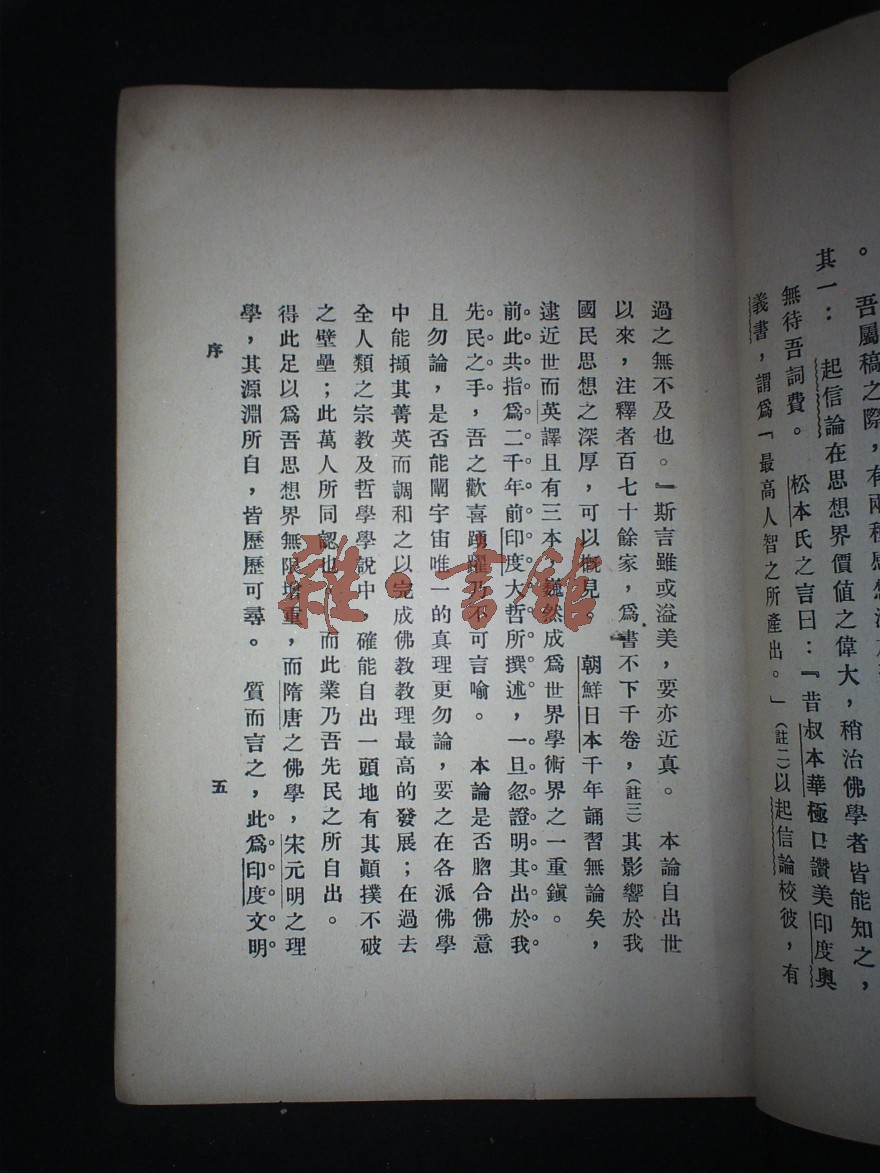 。　吾屬稿之際，有兩種感想
其一：　起信論在思想界價值之偉大，稍治佛學者皆能知之，
無待吾詞費。　松本氏之言曰：『昔叔本華極口讚美印度奧
義書，謂爲「最高人智之所產出。」（註二）以起信論校彼，有
過之無不及也。』斯言雖或溢美，要亦近真。　本論自出世
以來，注釋者百七十餘家，爲書不下千卷，（註三）其影響於我
國民思想之深厚，可以概見。　朝鮮日本千年誦習無論矣，
逮近世而英譯且有三本，巍然成爲世界學術界之一重鎭。
前此共指爲二千年前印度大哲所撰述，一旦忽證明其出於我
先民之手，吾之歡喜踴躍乃不可言喻。　本論是否脗合佛意
且勿論，是否能闡宇宙唯一的真理更勿論，要之在各派佛學
中能擷其菁英而調和之以完成佛教教理最高的發展；在過去
全人類之宗教及哲學學說中，確能自出一頭地有其顚撲不破
之壁壘；此萬人所同認也。而此業乃吾先民之所自出。
得此足以爲吾思想界無限增重，而隋唐之佛學，宋元明之理
學，其源淵所自，皆歷歷可尋。　質而言之，此爲印度文明
序　五
雜·書館